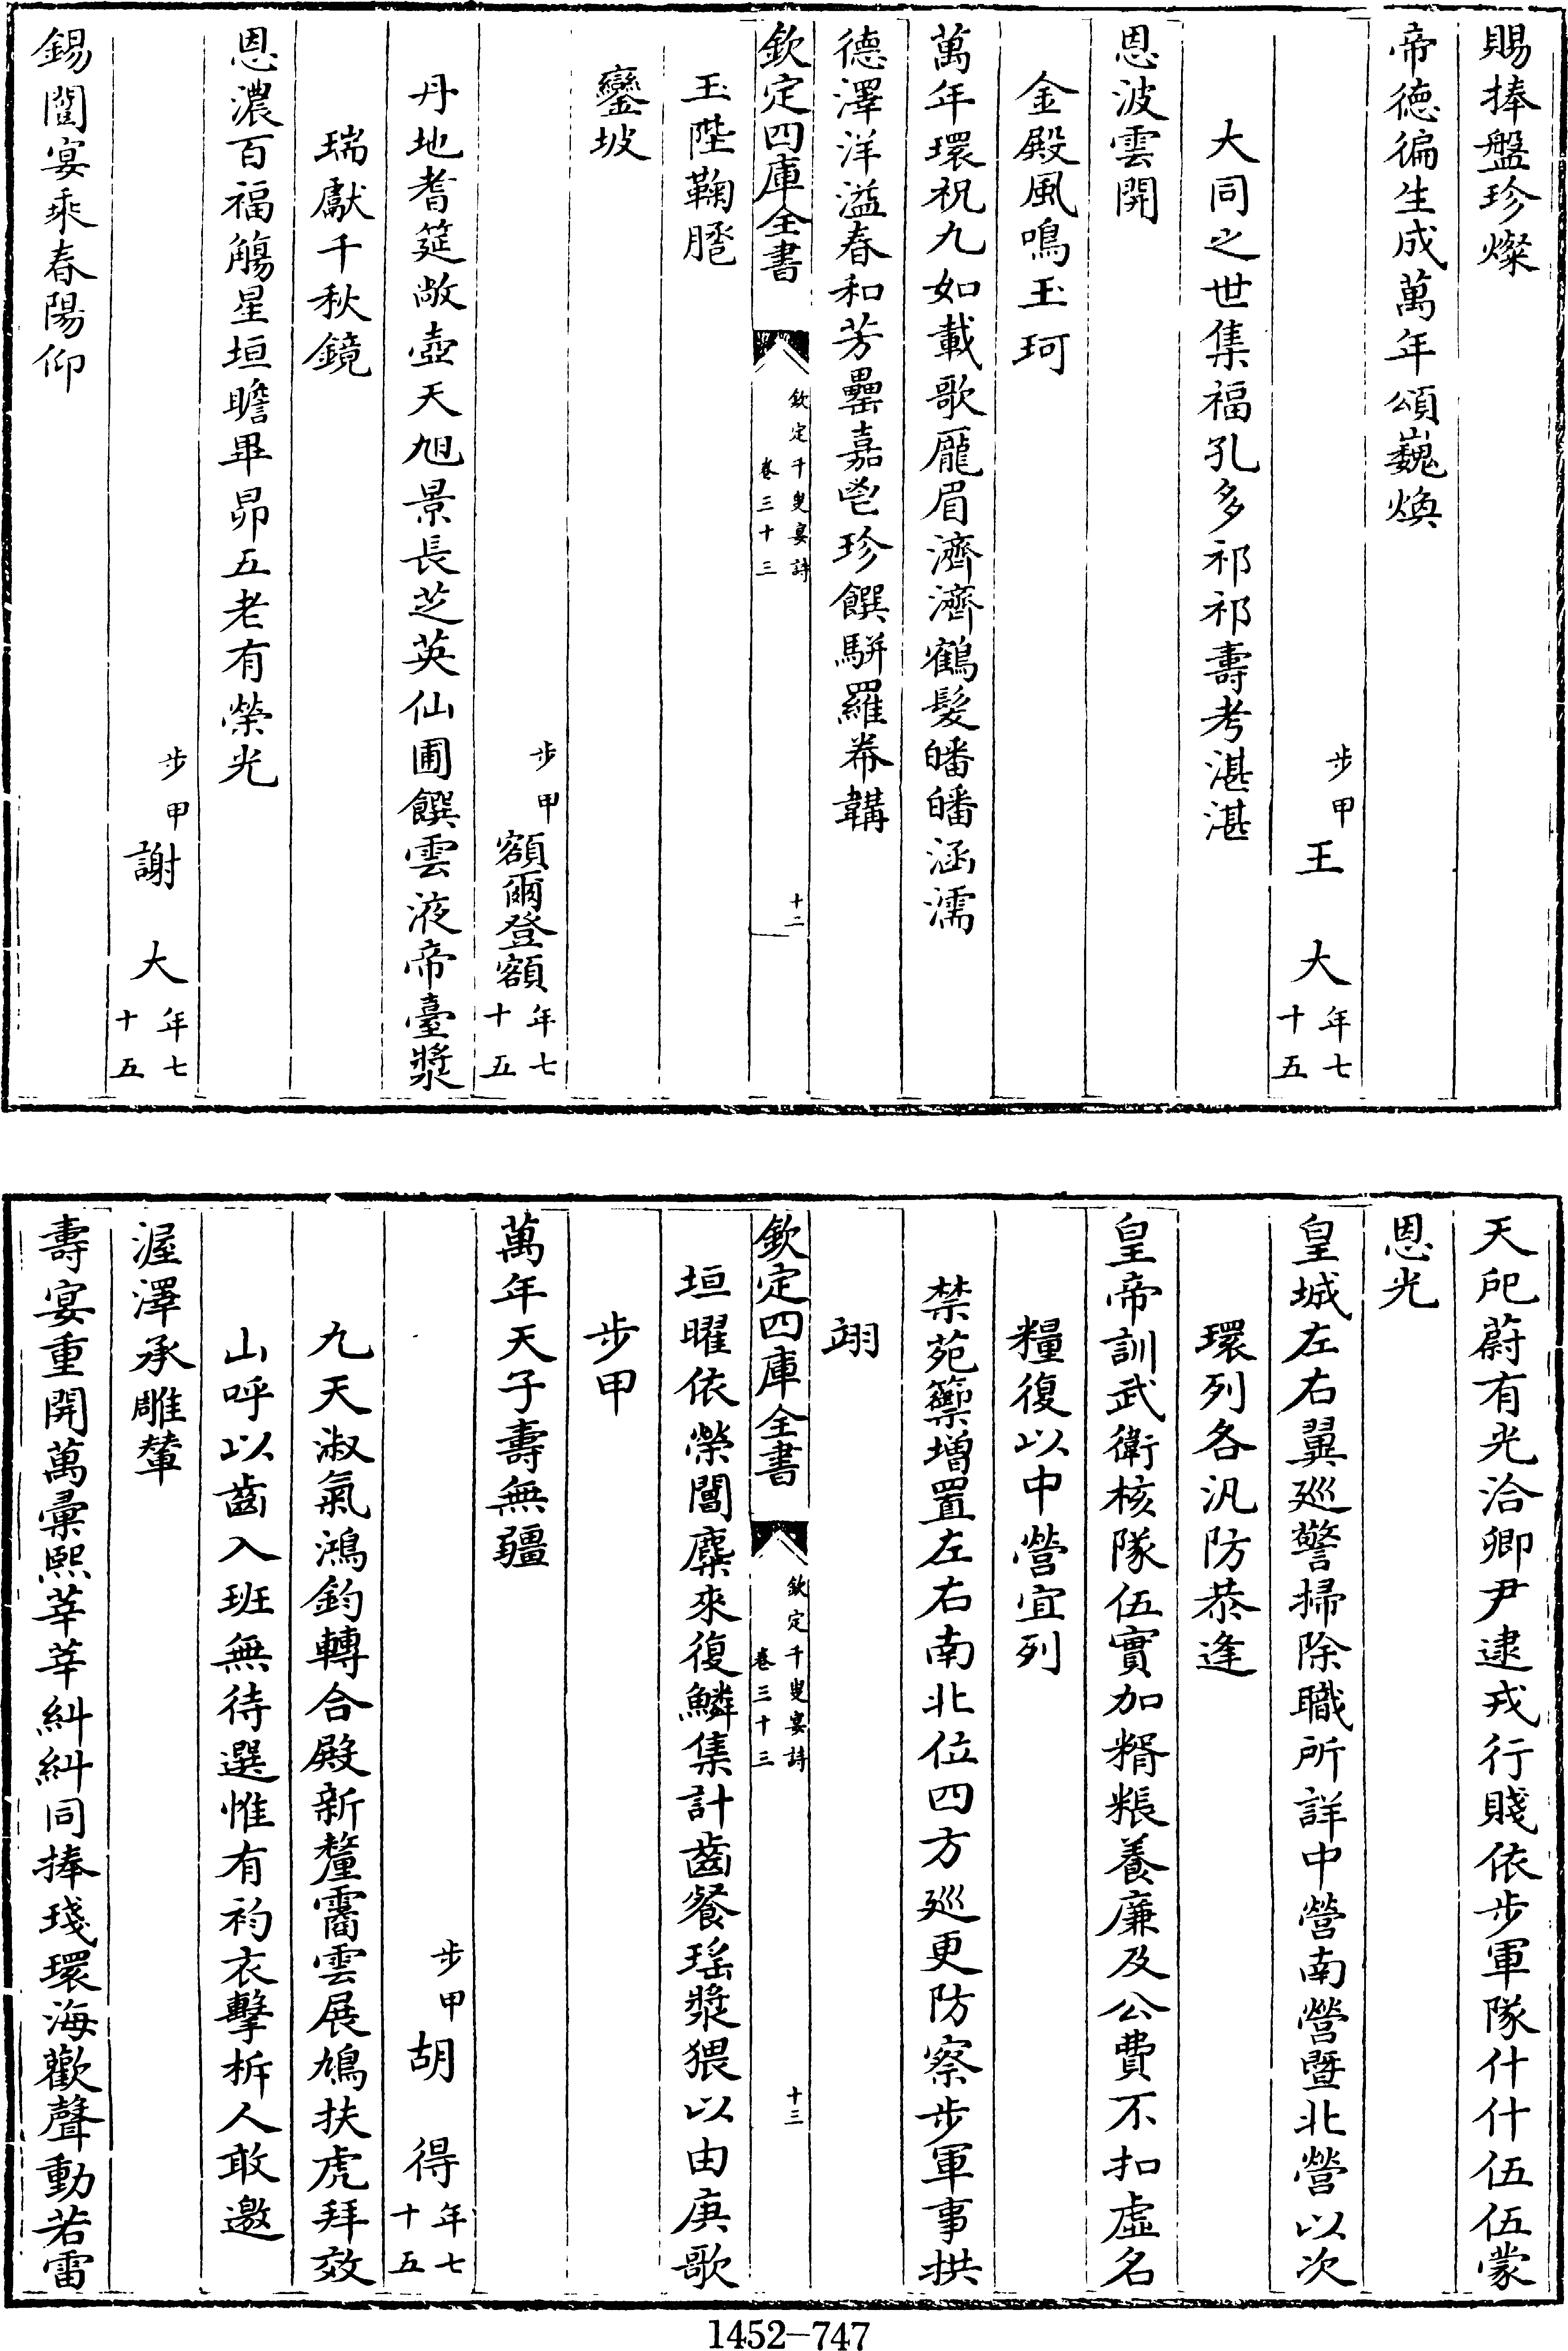 賜捧盤珍燦
帝徳徧生成萬年頌巍煥
步甲王　大年七十五
大同之世集福孔多祁祁壽考湛湛
恩波雲開
金殿風鳴玉珂
萬年環祝九如載歌厖眉濟濟鶴髮皤皤涵濡
德澤洋溢春和芳罍嘉鬯珍饌駢羅帣韝
欽定四庫全書
欽定千叟宴詩
卷三十三
十二
玉陛鞠䠒
鑾坡
步甲額爾登額年七十五
丹地耆筵敞壺天旭景長芝英仙圃饌雲液帝臺漿
瑞獻千秋鏡
恩濃百福觴星垣瞻畢昴五老有榮光
步甲謝　大年七十五
錫闓宴乘春陽仰
天戺蔚有光洽卿尹逮戎行賤依步軍隊什什伍伍蒙
恩光
皇城左右翼巡警掃除職所詳中營南營暨北營以次
環列各汛防恭逢
皇帝訓武衛核隊伍實加糈粻養廉及公費不扣虛名
糧復以中營宜列
禁苑籞増置左右南北位四方巡更防察步軍事拱
翊
垣曜依榮閶麇來復鱗集計齒餐瑶漿猥以由庚歌
步甲
萬年天子壽無疆
步甲胡　得年七十五
九天淑氣鴻鈞轉合殿新釐靄雲展鳩扶虎拜效
山呼以齒入班無待選惟有袀衣擊柝人敢邀
渥澤承雕輦
壽宴重開萬彙熙莘莘糾糾同捧琖環海歡聲動若雷
1452—747